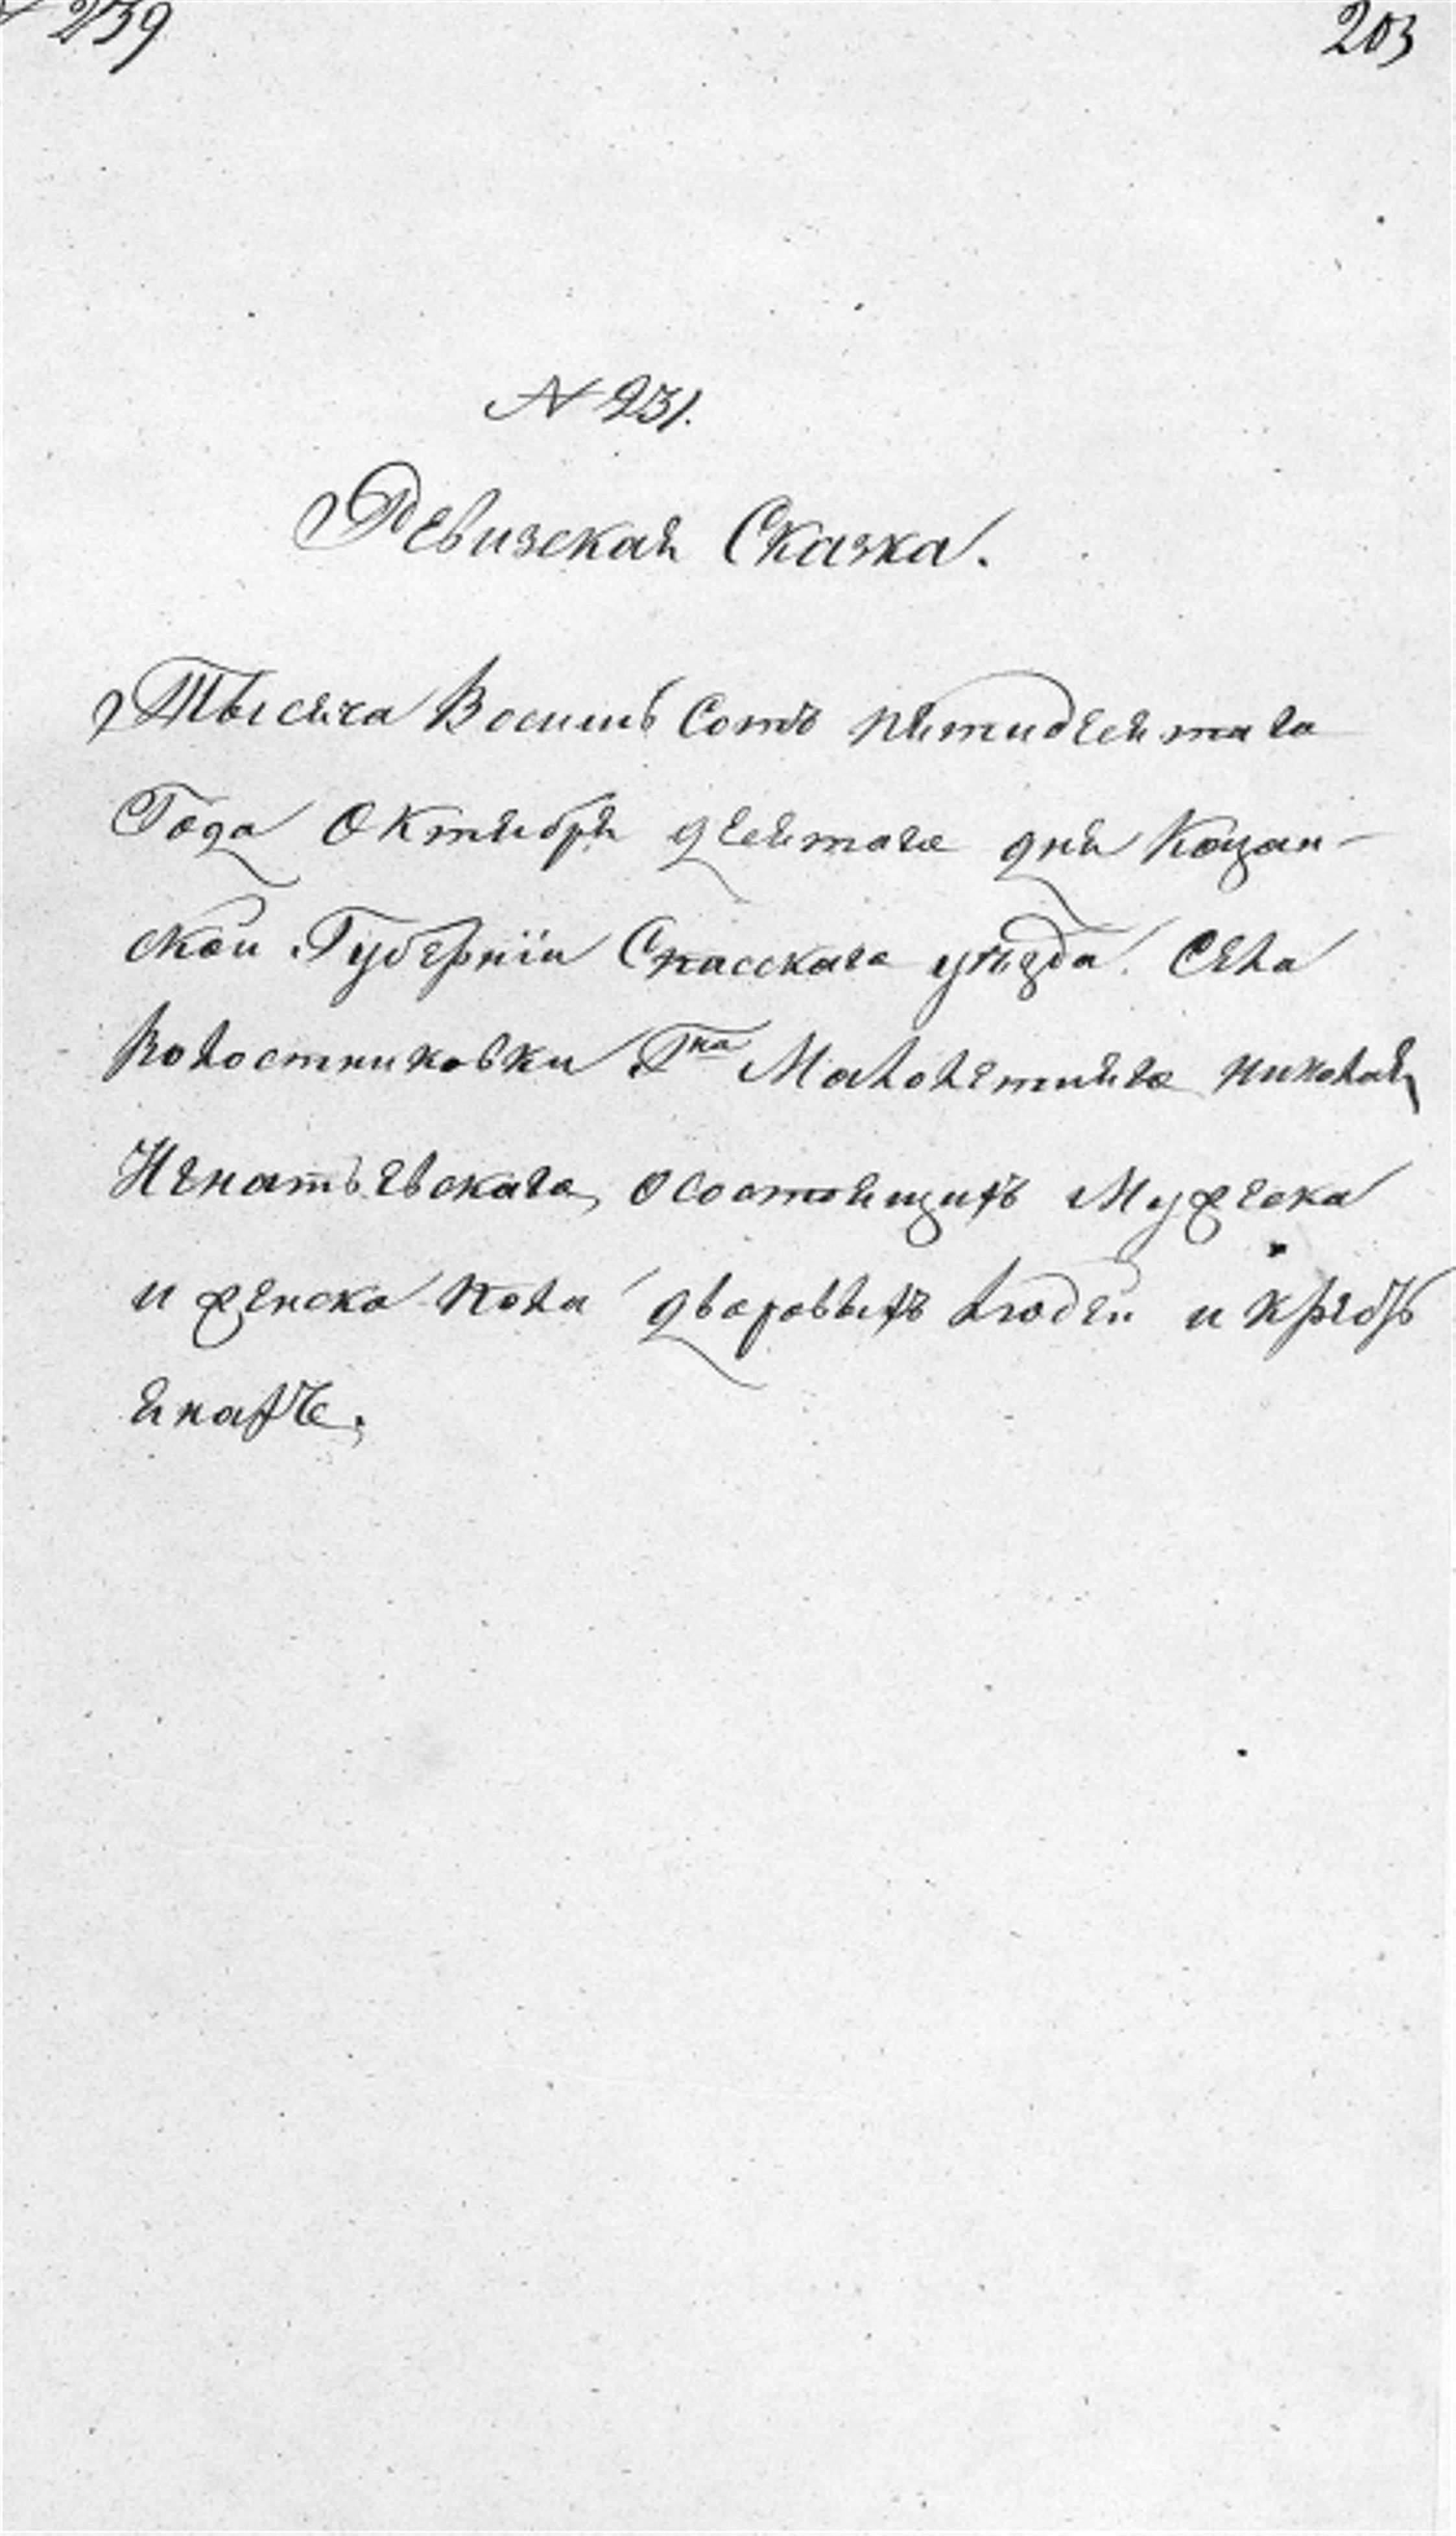 № 239 203
№ 231.
Ревизская Сказка.
Тысяча Восимь Сотъ пятидесятага
Года Октября десятаго дня Казан-
скои Губерніи Спасскаго уѣзда. Села
Волостниковки Гна Малолетняго николая
Игнатьевскаго, о состоящихъ Мужеска
и женска пола дворовыхъ людеи и кресть
янахъ.